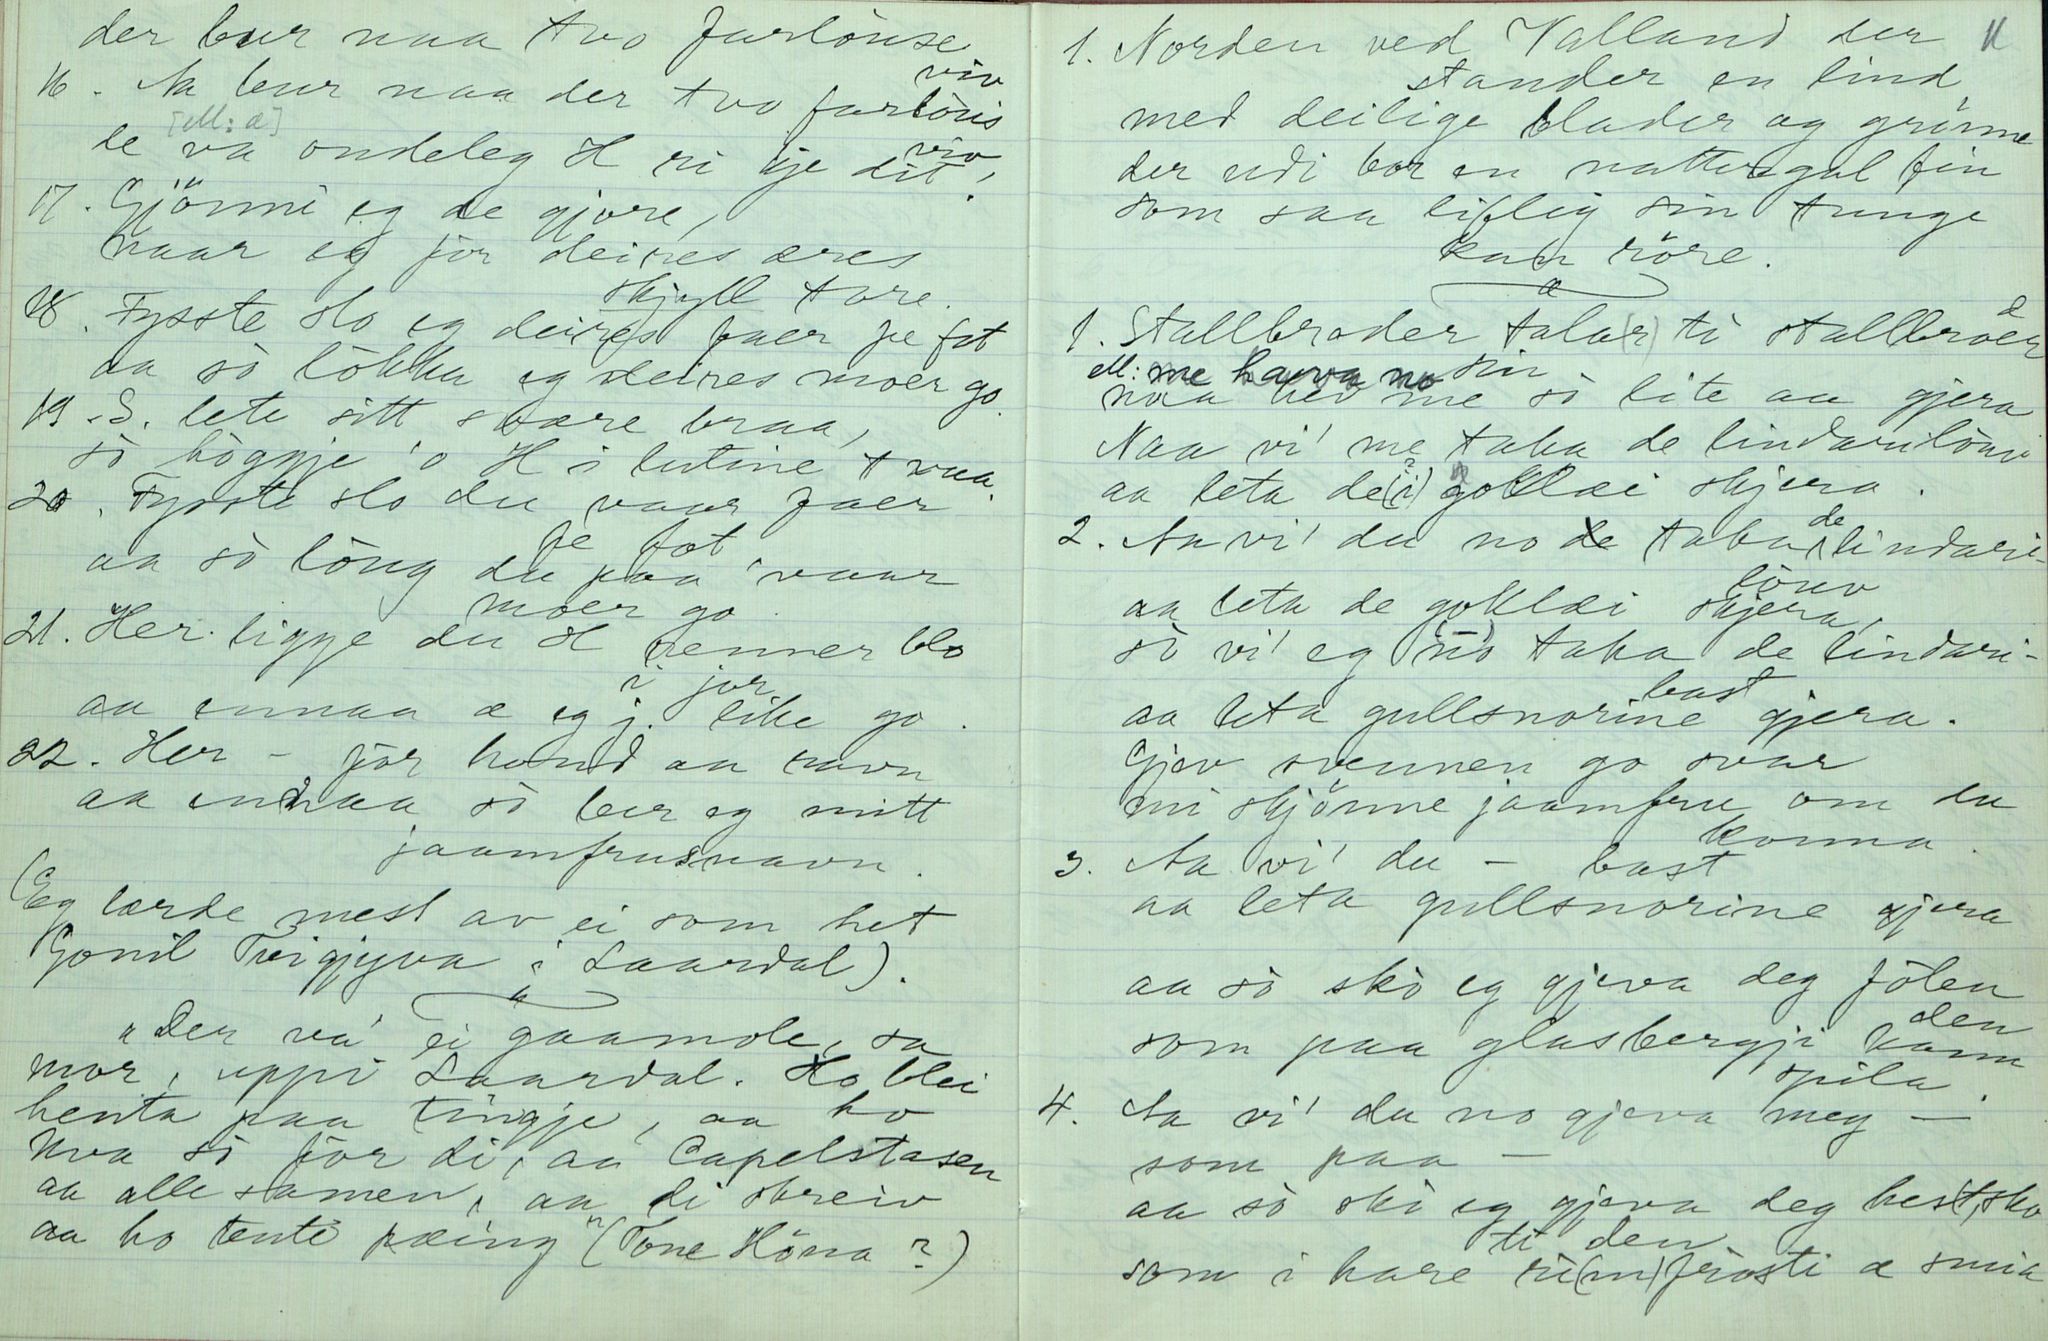 der bur naa tvo farlöuse
viv
16. Aa bur naa der tvo farlöuis
viv
[ell: a]
de va ondeleg H ri kje dit!
17. Gjönni eg de gjore,
naar eg för deires æres
skjyll tore.
18. Fysste slo eg deires faer je fot
aa so lökka eg deires moer go
19. S. lete sitt svære braa,
so höggje 'o H i lutine tvaa.
20. Fysste slo du vaar faer
je fot
aa so löug du paa vaar
moer go
21. Her ligge du H renner blo
i jor
aa ennaa æ eg j. like go.
22. Her – för hund aa ravn
aa ennaa so ber eg mitt
jaamfrusnavn.
(Eg lærde mest av ei som het
Gonil Treigjyva i Laardal).
"Der va' ei gaamole, sa
mor, uppi Laardal. Ho blei
henta paa tingje, aa ho
kva so för di, aa Capelstasen
aa alle samen, aa di skreiv
aa ho tente pæing" (Tone Höna?)
11
1. Norden ved Valland der
stander en lind
med deilige blader og grönne
der udi bor en nattergal fin
som saa liflig sin tunge
kan röre.
1. Stallbroder talar(r) ti stallbröer
sin
ell: me hava no
naa hev me so lite aa gjera
Naa vi' me taka de lindarilöuv
aa leta de(i) goklæi skjera.
2. Aa vi' du no taka de lindari-
löuv
aa leta de goklæi skjera,
so vi' eg no taka de lindari-
bast
aa leta gullsnorine gjera.
Gjev svennen go svar
mi skjönne jaamfru om du
konna.
3. Aa vi' du – bast
aa leta gullsnorine gjera
aa so sko eg gjeva deg fölen
den
som paa glasbergji kann
spila.
4. Aa vi' du no gjeva meg –
som paa –
aa so sko eg gjeva deg hestsko
ti den
som i hare ri(m)frosti æ smia